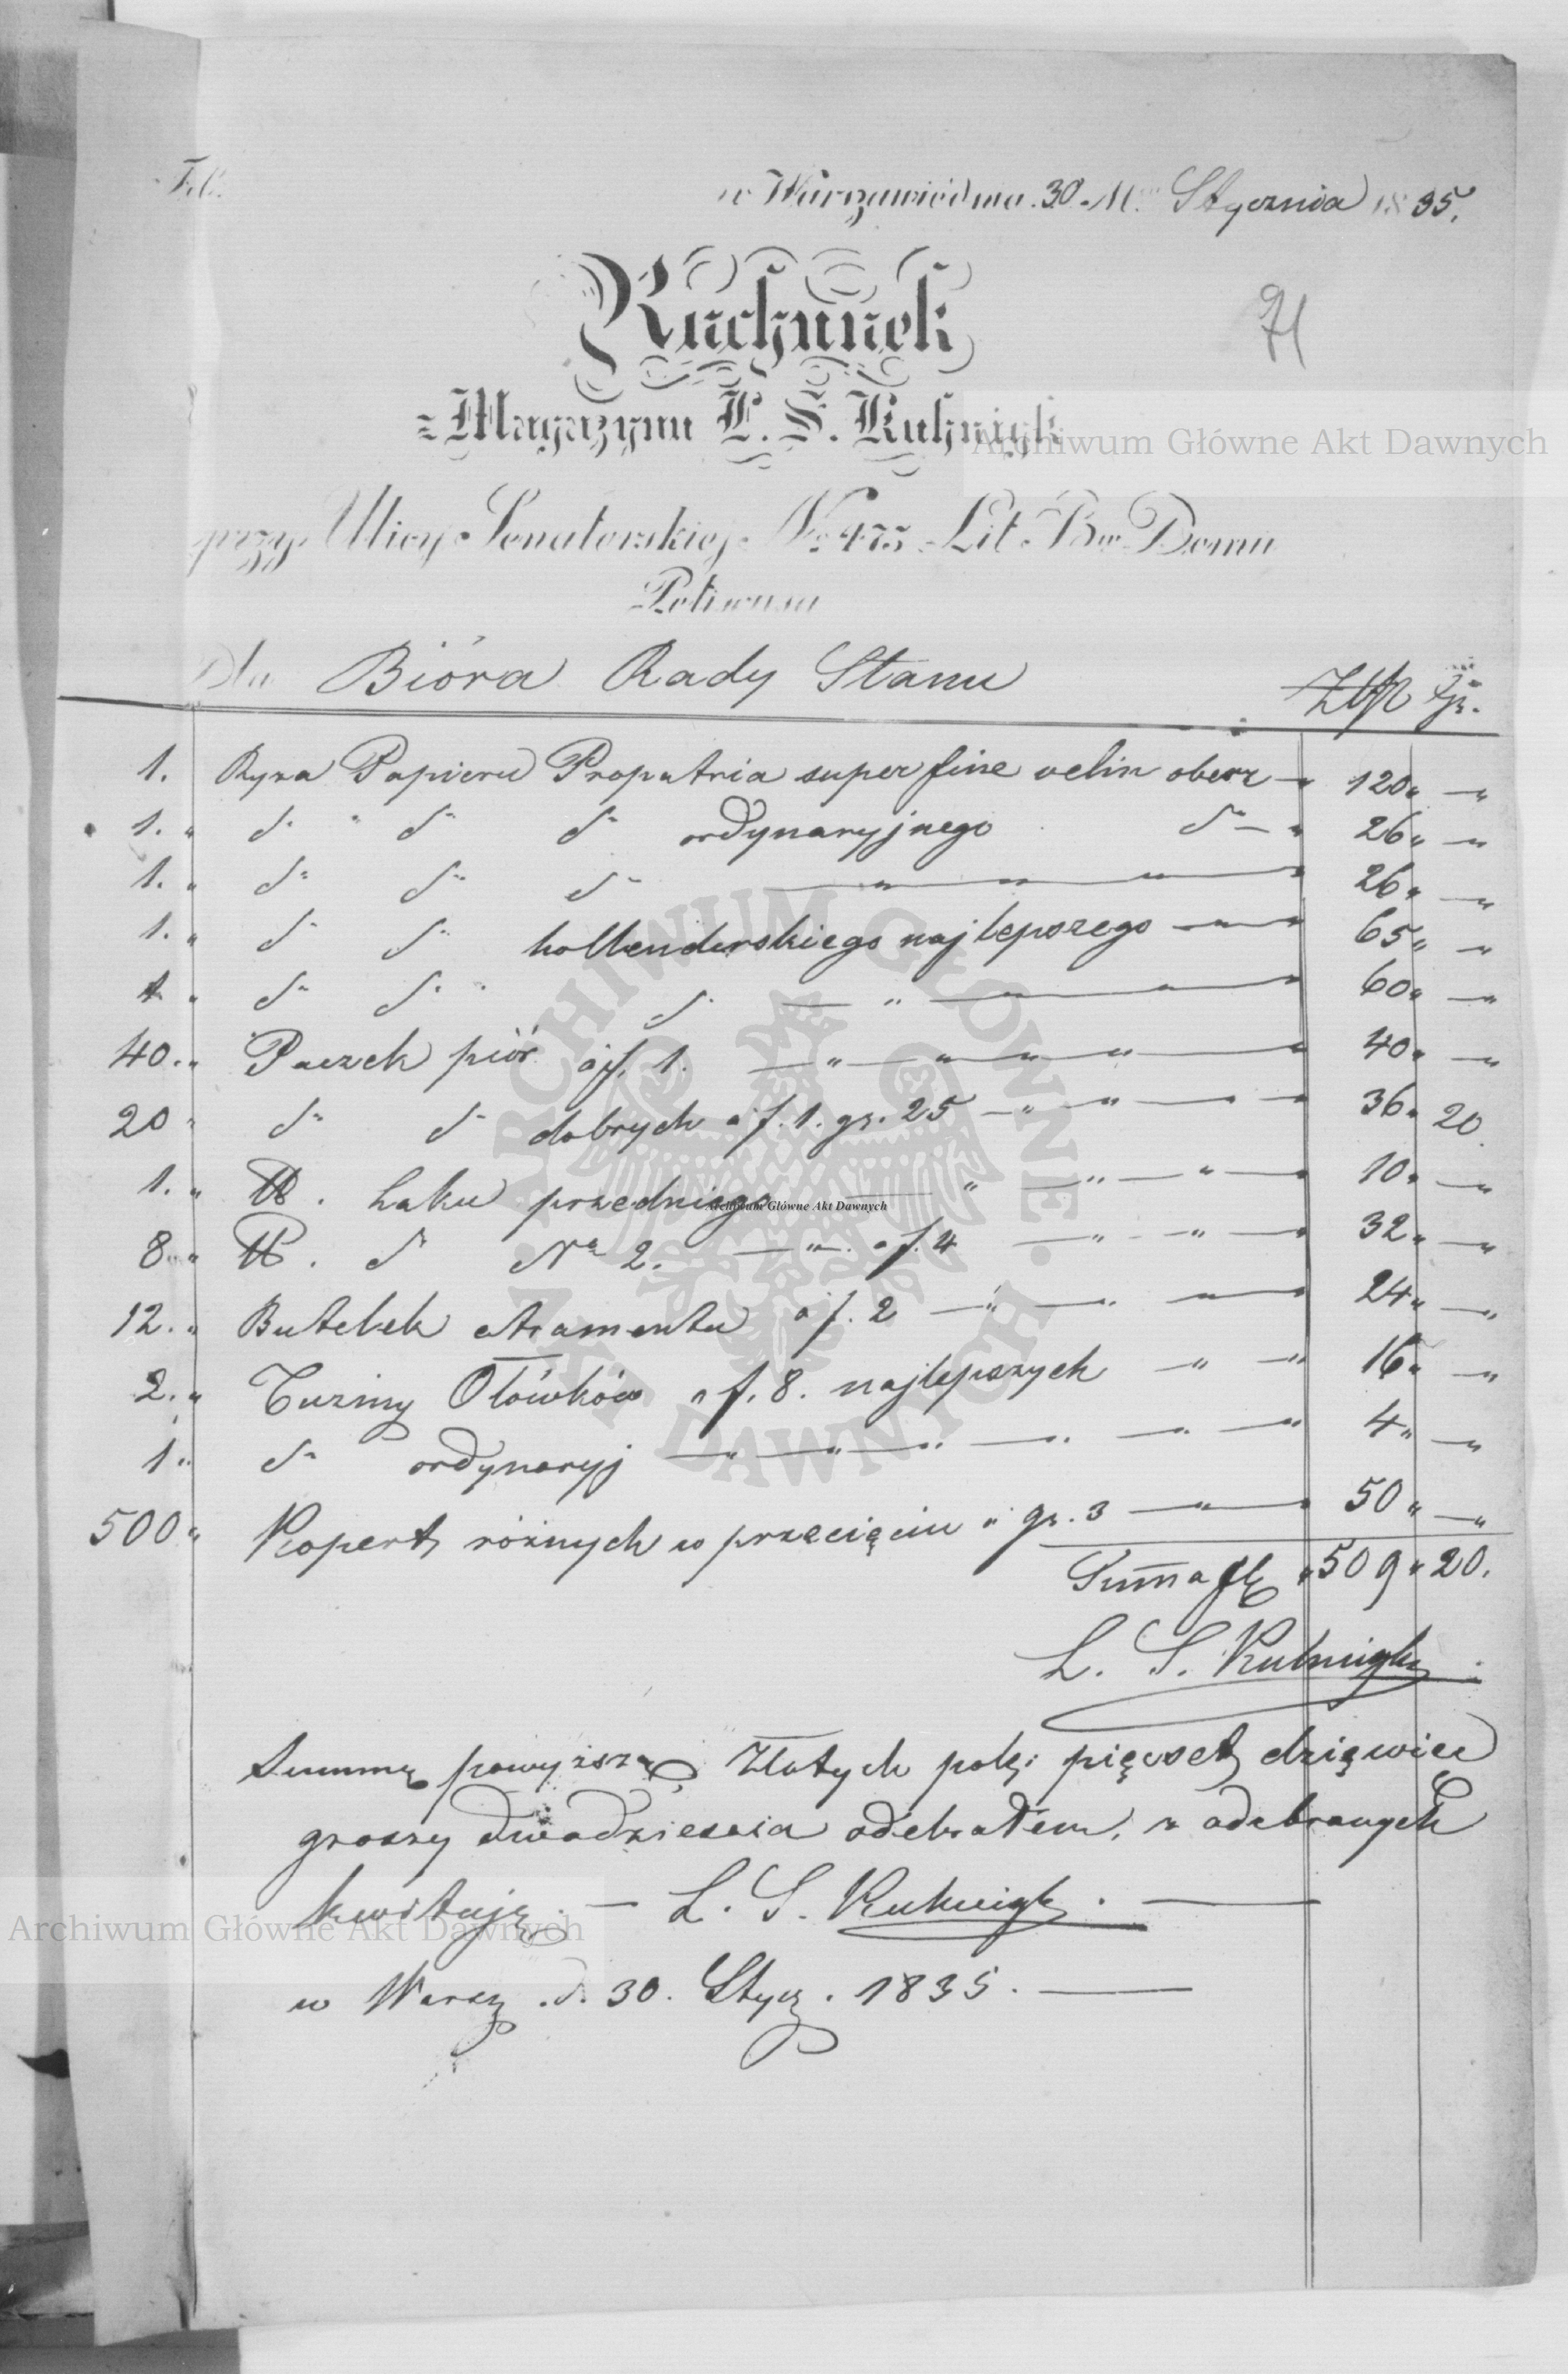 Fol.
w Warszawie dnia 30 M. Stycznia 1835.
71
Rachunek
z Magazynu L. S. Kuhnigk
Archiwum Główne Akt Dawnych
przy Ulicy Senatorskiej No 475 Lit. B w Domu
Dla Bióra Rady Stanu Złp gr.
1. Ryza Papieru Propatria super fine velin oberz — 120 " — "
1. " d° " d° d° ordynaryjnego d° — " 26 " — "
1. " d° d° d° — " — " — " — " 26 " — "
1. " d° d° hollenderskiego najlepszego — " — " 65 " — "
1 " d° d° " d° — " — " — " — " 60 " — "
40. " Paczek piór à f. 1. — " — " — " — " — " 40 " — "
20 " d° d° dobrych à f. 1. gr. 25 — " — " — " — " 36 " 20.
1. " ℔. Laku przedniego — " — " — " — " 10 " — "
8. " ℔. d° No 2. — " — à f. 4 — " — " — " 32 " — "
12. " Butelek atramentu à f. 2 — " — " — " — " 24 " — "
2. " Tuziny Ołówków à f. 8. najlepszych — " — " 16 " — "
1 " d° ordynaryj — " — " — " — " — " — " 4 " — "
500 " Kopert różnych w przecięciu à gr. 3 — " — " 50 " — "
Summa fl " 509 " 20.
L. S. Kuhnigk
Summę powyższą Złotych pols: pięćset dziewięć
groszy dwadzieścia odebrałem, z odebranych
kwituję. — L. S. Kuhnigk. —
w Warsz. d. 30. Stycz. 1835. —
Archiwum Główne Akt Dawnych
ARCHIWUM GŁÓWNE AKT DAWNYCH
Archiwum Główne Akt Dawnych